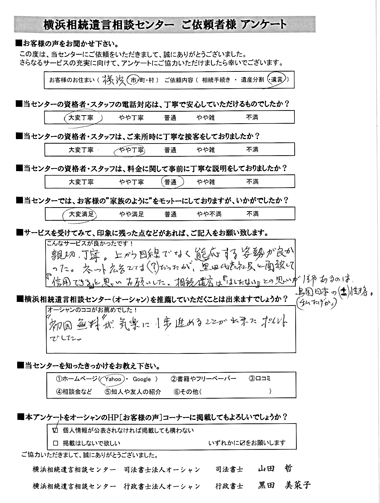 横浜相続遺言相談センター　ご依頼者様 アンケート
■お客様の声をお聞かせ下さい。
この度は、当センターにご依頼をいただきまして、誠にありがとうございました。
さらなるサービスの充実に向けて、アンケートにご協力いただけましたら幸いでございます。
お客様のお住まい（ 横浜 市・町・村 ）　ご依頼内容（ 相続手続き ・ 遺産分割 ・ 遺言 ）
■当センターの資格者・スタッフの電話対応は、丁寧で安心していただけるものでしたか？
大変丁寧　やや丁寧　普通　やや雑　不満
■当センターの資格者・スタッフは、ご来所時に丁寧な接客をしておりましたか？
大変丁寧　やや丁寧　普通　やや雑　不満
■当センターの資格者・スタッフは、料金に関して事前に丁寧な説明をしておりましたか？
大変丁寧　やや丁寧　普通　やや雑　不満
■当センターでは、お客様の"家族のように"をモットーにしておりますが、いかがでしたか？
大変満足　やや満足　普通　やや不満　不満
■サービスを受けてみて、印象に残った点などがあれば、ご記入をお願い致します。
こんなサービスが良かったです！
親切、丁寧。上から目線でなく 対応する姿勢が良か
った。ネット
信用できると思い お願いした。相続
■横浜相続遺言相談センター（オーシャン）を推薦していただくことは出来ますでしょうか？
オーシャンのココがお薦めです！
"初回無料"が気楽に1歩進めることが出来たポイント
でした。
■当センターを知ったきっかけをお教え下さい。
①ホームページ（ Yahoo ・ Google ）　②書籍やフリーペーパー　③口コミ
④相談会など　⑤知人や友人の紹介　⑥その他（　　　）
■本アンケートをオーシャンのHP【お客様の声】コーナーに掲載してもよろしいでしょうか？
☑ 個人情報が公表されなければ掲載しても構わない
□ 掲載はしないで欲しい　いずれかに☑をお願いします
ご協力いただきまして、誠にありがとうございました。
横浜相続遺言相談センター　司法書士法人オーシャン　司法書士　山田　哲
横浜相続遺言相談センター　行政書士法人オーシャン　行政書士　黒田　美菜子